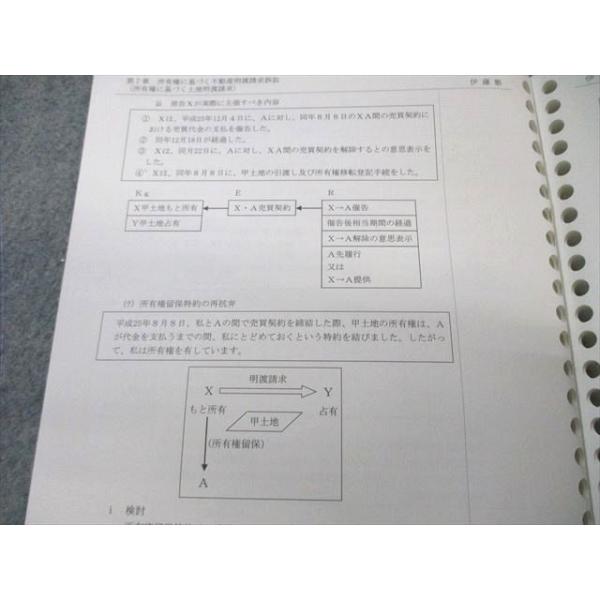 第7章 所有権に基づく不動産明渡請求訴訟
(所有権に基づく土地明渡請求)
伊藤塾
ⅲ 原告Xが実際に主張すべき内容
① Xは、平成25年12月4日に、Aに対し、同年8月8日のXA間の売買契約に
おける売買代金の支払を催告した。
② 同年12月18日が経過した。
③ Xは、同月22日に、Aに対し、XA間の売買契約を解除するとの意思表示を
した。
④ Xは、同年8月8日に、甲土地の引渡し及び所有権移転登記手続をした。
Kg E R
X甲土地もと所有 X・A売買契約 X→A催告
Y甲土地占有 催告後相当期間の経過
X→A解除の意思表示
A先履行
又は
X→A提供
(ｳ) 所有権留保特約の再抗弁
平成25年8月8日、私とAの間で売買契約を締結した際、甲土地の所有権は、A
が代金を支払うまでの間、私にとどめておくという特約を結びました。したがっ
て、私は所有権を有しています。
明渡請求
X Y
もと所有 占有
甲土地
(所有権留保)
A
i 検討